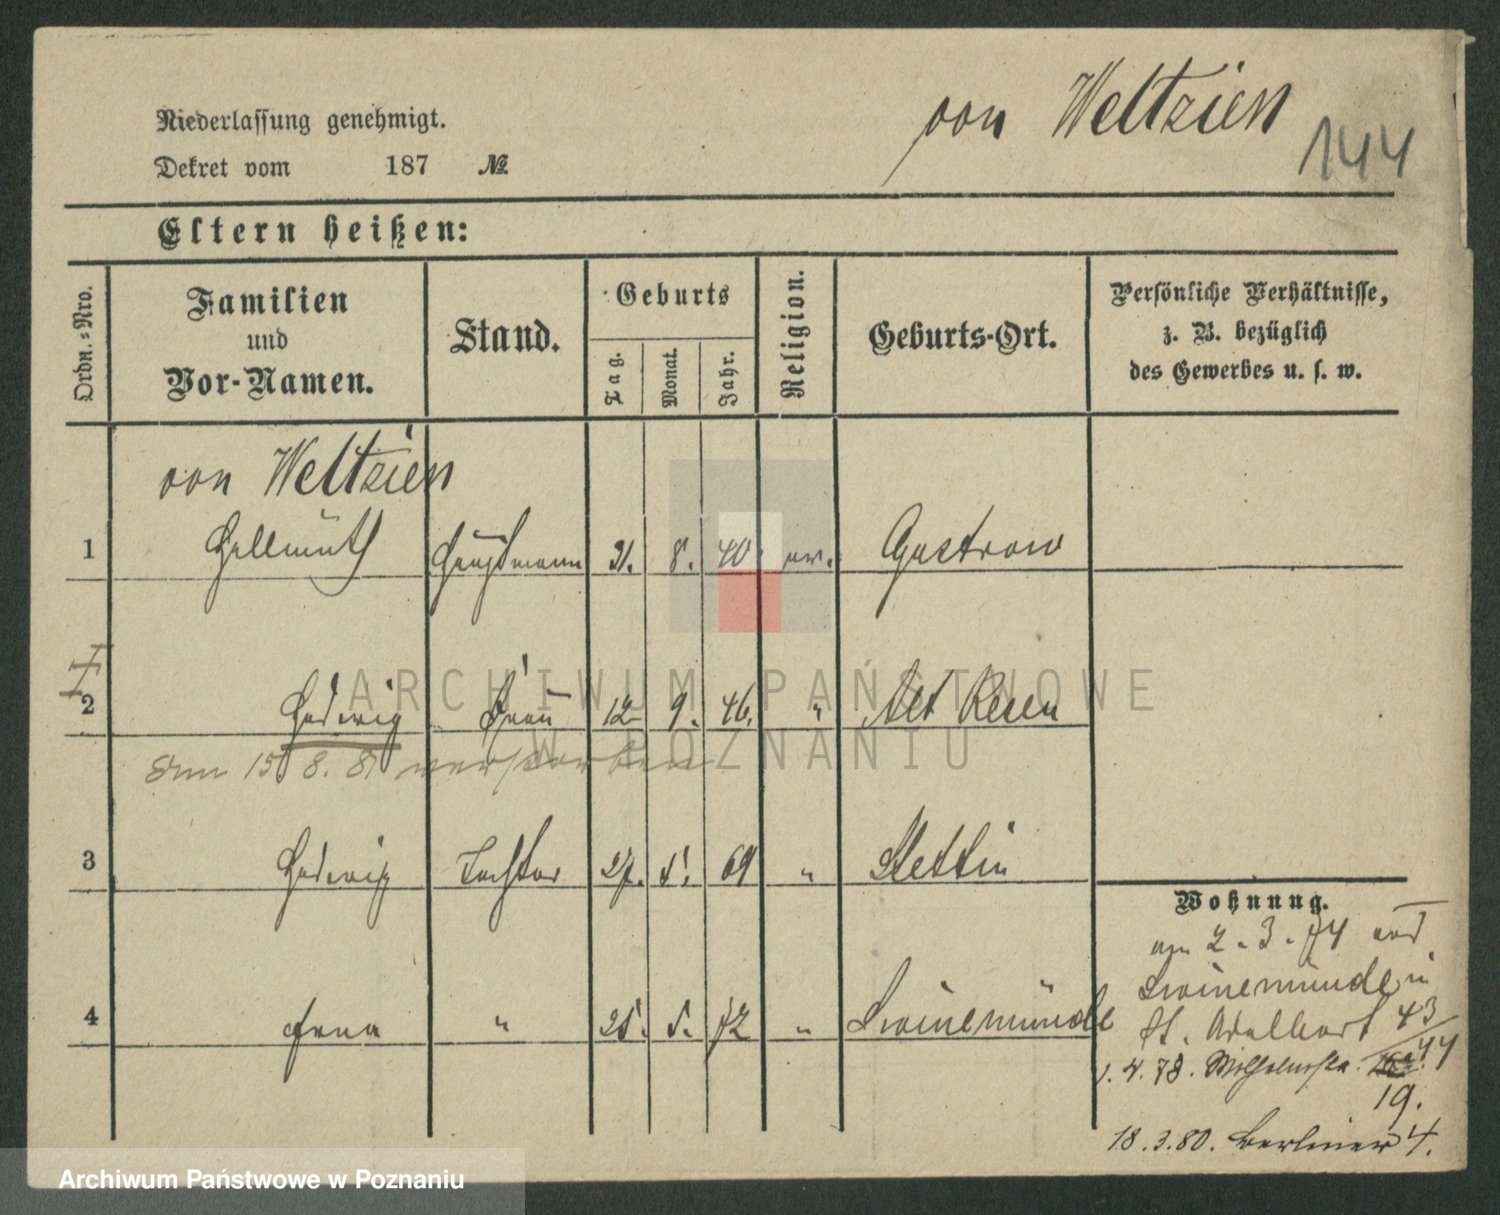 von Weltzien
144
Niederlassung genehmigt.
Dekret vom 187 №
Eltern heißen:
Ordn.-Nro.
Familien
und
Vor-Namen.
Stand.
Geburts
Tag.
Monat.
Jahr.
Religion.
Geburts-Ort.
Persönliche Verhältnisse,
z. B. bezüglich
des Gewerbes u. s. w.
von Weltzien
1 Hellmuth Hauptmann 21. 8. 40. ev. Gustrow
2 Hedwig Frau 12 9. 46. " Alt Resen
Am 15 8. 81 verstorben
3 Hedwig Tochter 27. 5. 69 " Stettin
4 " 25. 5. 72 " Swinemünde
Wohnung.
am 2. 3. 74 aus
Swinemünde in
St. Adalbert 43/44
1. 4. 78. Wilhelmstr.
19.
18. 3. 80. Berliner 4.
ARCHIWUM PAŃSTWOWE
W POZNANIU
Archiwum Państwowe w Poznaniu